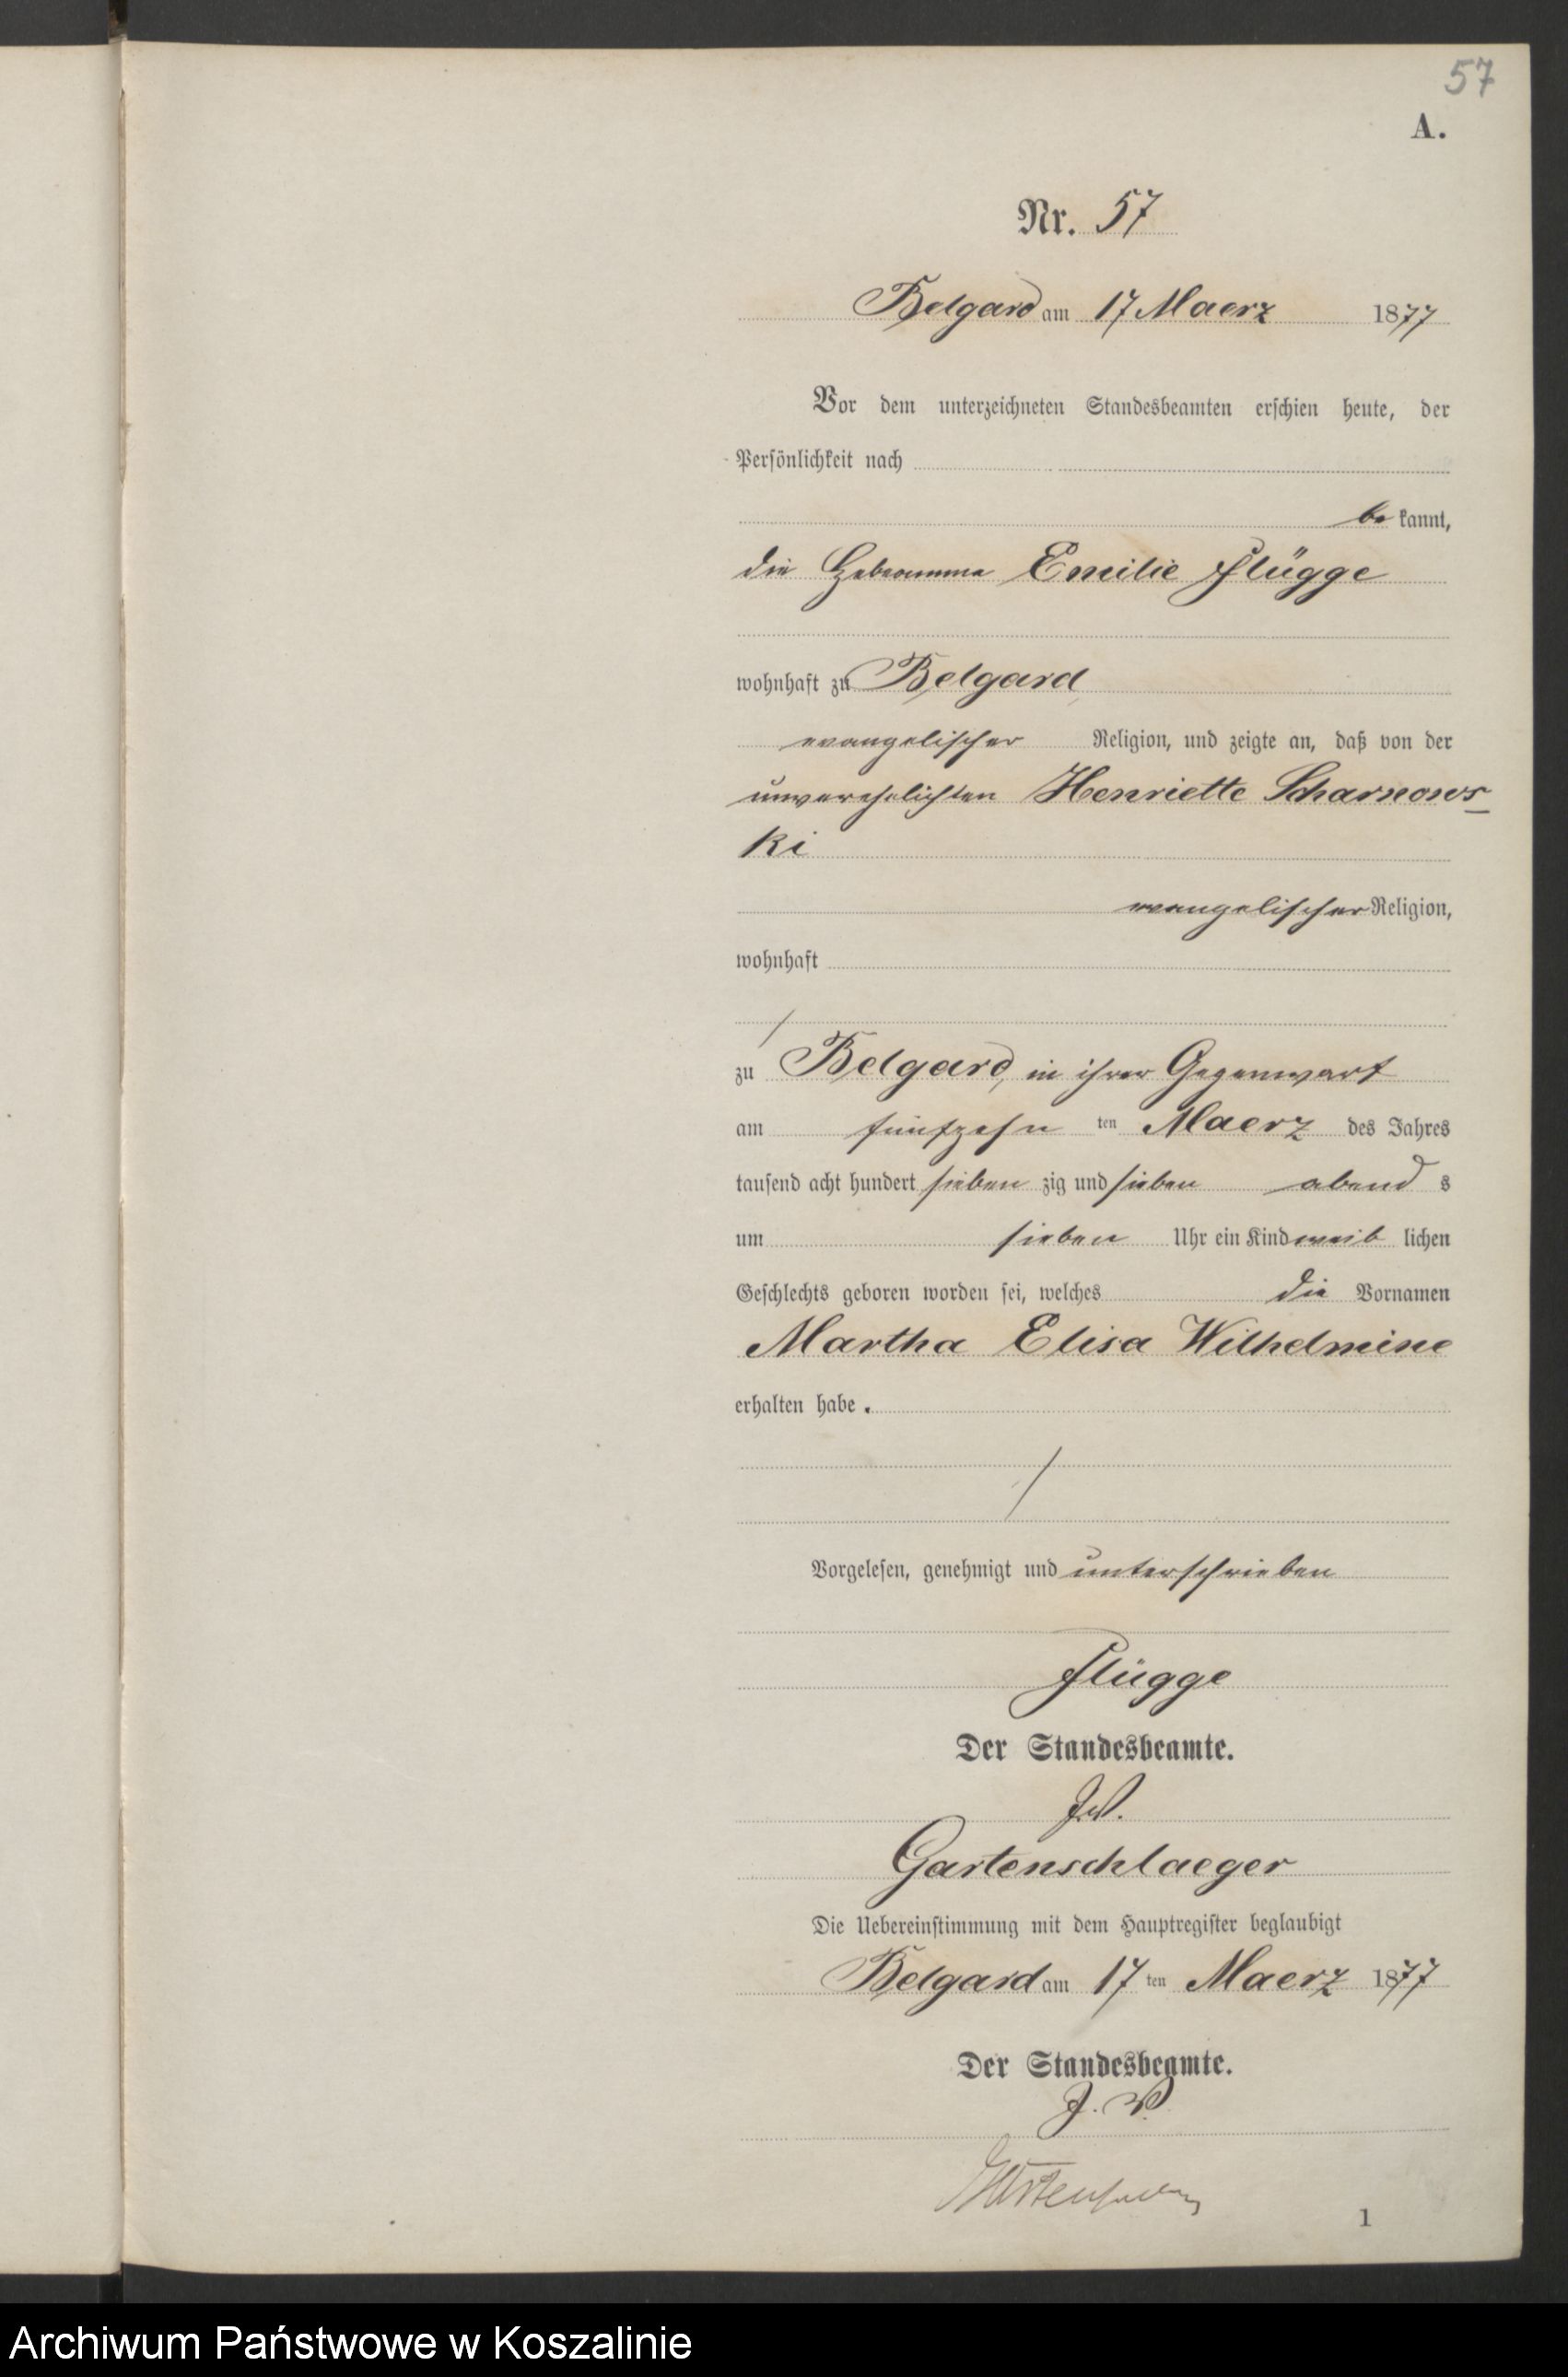 57
A.
Nr. 57
Belgard am 17 Maerz 1877
Vor dem unterzeichneten Standesbeamten erschien heute, der
Persönlichkeit nach
be kannt,
die Hebeamme Emilie Flügge
wohnhaft zu Belgard
evangelischer Religion, und zeigte an, daß von der
unverehelichten Henriette Scharnows-
ki
evangelischer Religion,
wohnhaft
zu Belgard, in ihrer Gegenwart
am fünfzehn ten Maerz des Jahres
tausend acht hundert sieben zig und sieben abend s
um sieben Uhr ein Kind weib lichen
Geschlechts geboren worden sei, welches die Vornamen
Martha Elisa Wilhelmine
erhalten habe.
Vorgelesen, genehmigt und unterschrieben
Flügge
Der Standesbeamte.
J.V.
Gartenschlaeger
Die Uebereinstimmung mit dem Hauptregister beglaubigt
Belgard am 17 ten Maerz 1877
Der Standesbeamte.
J. V.
1
Archiwum Państwowe w Koszalinie